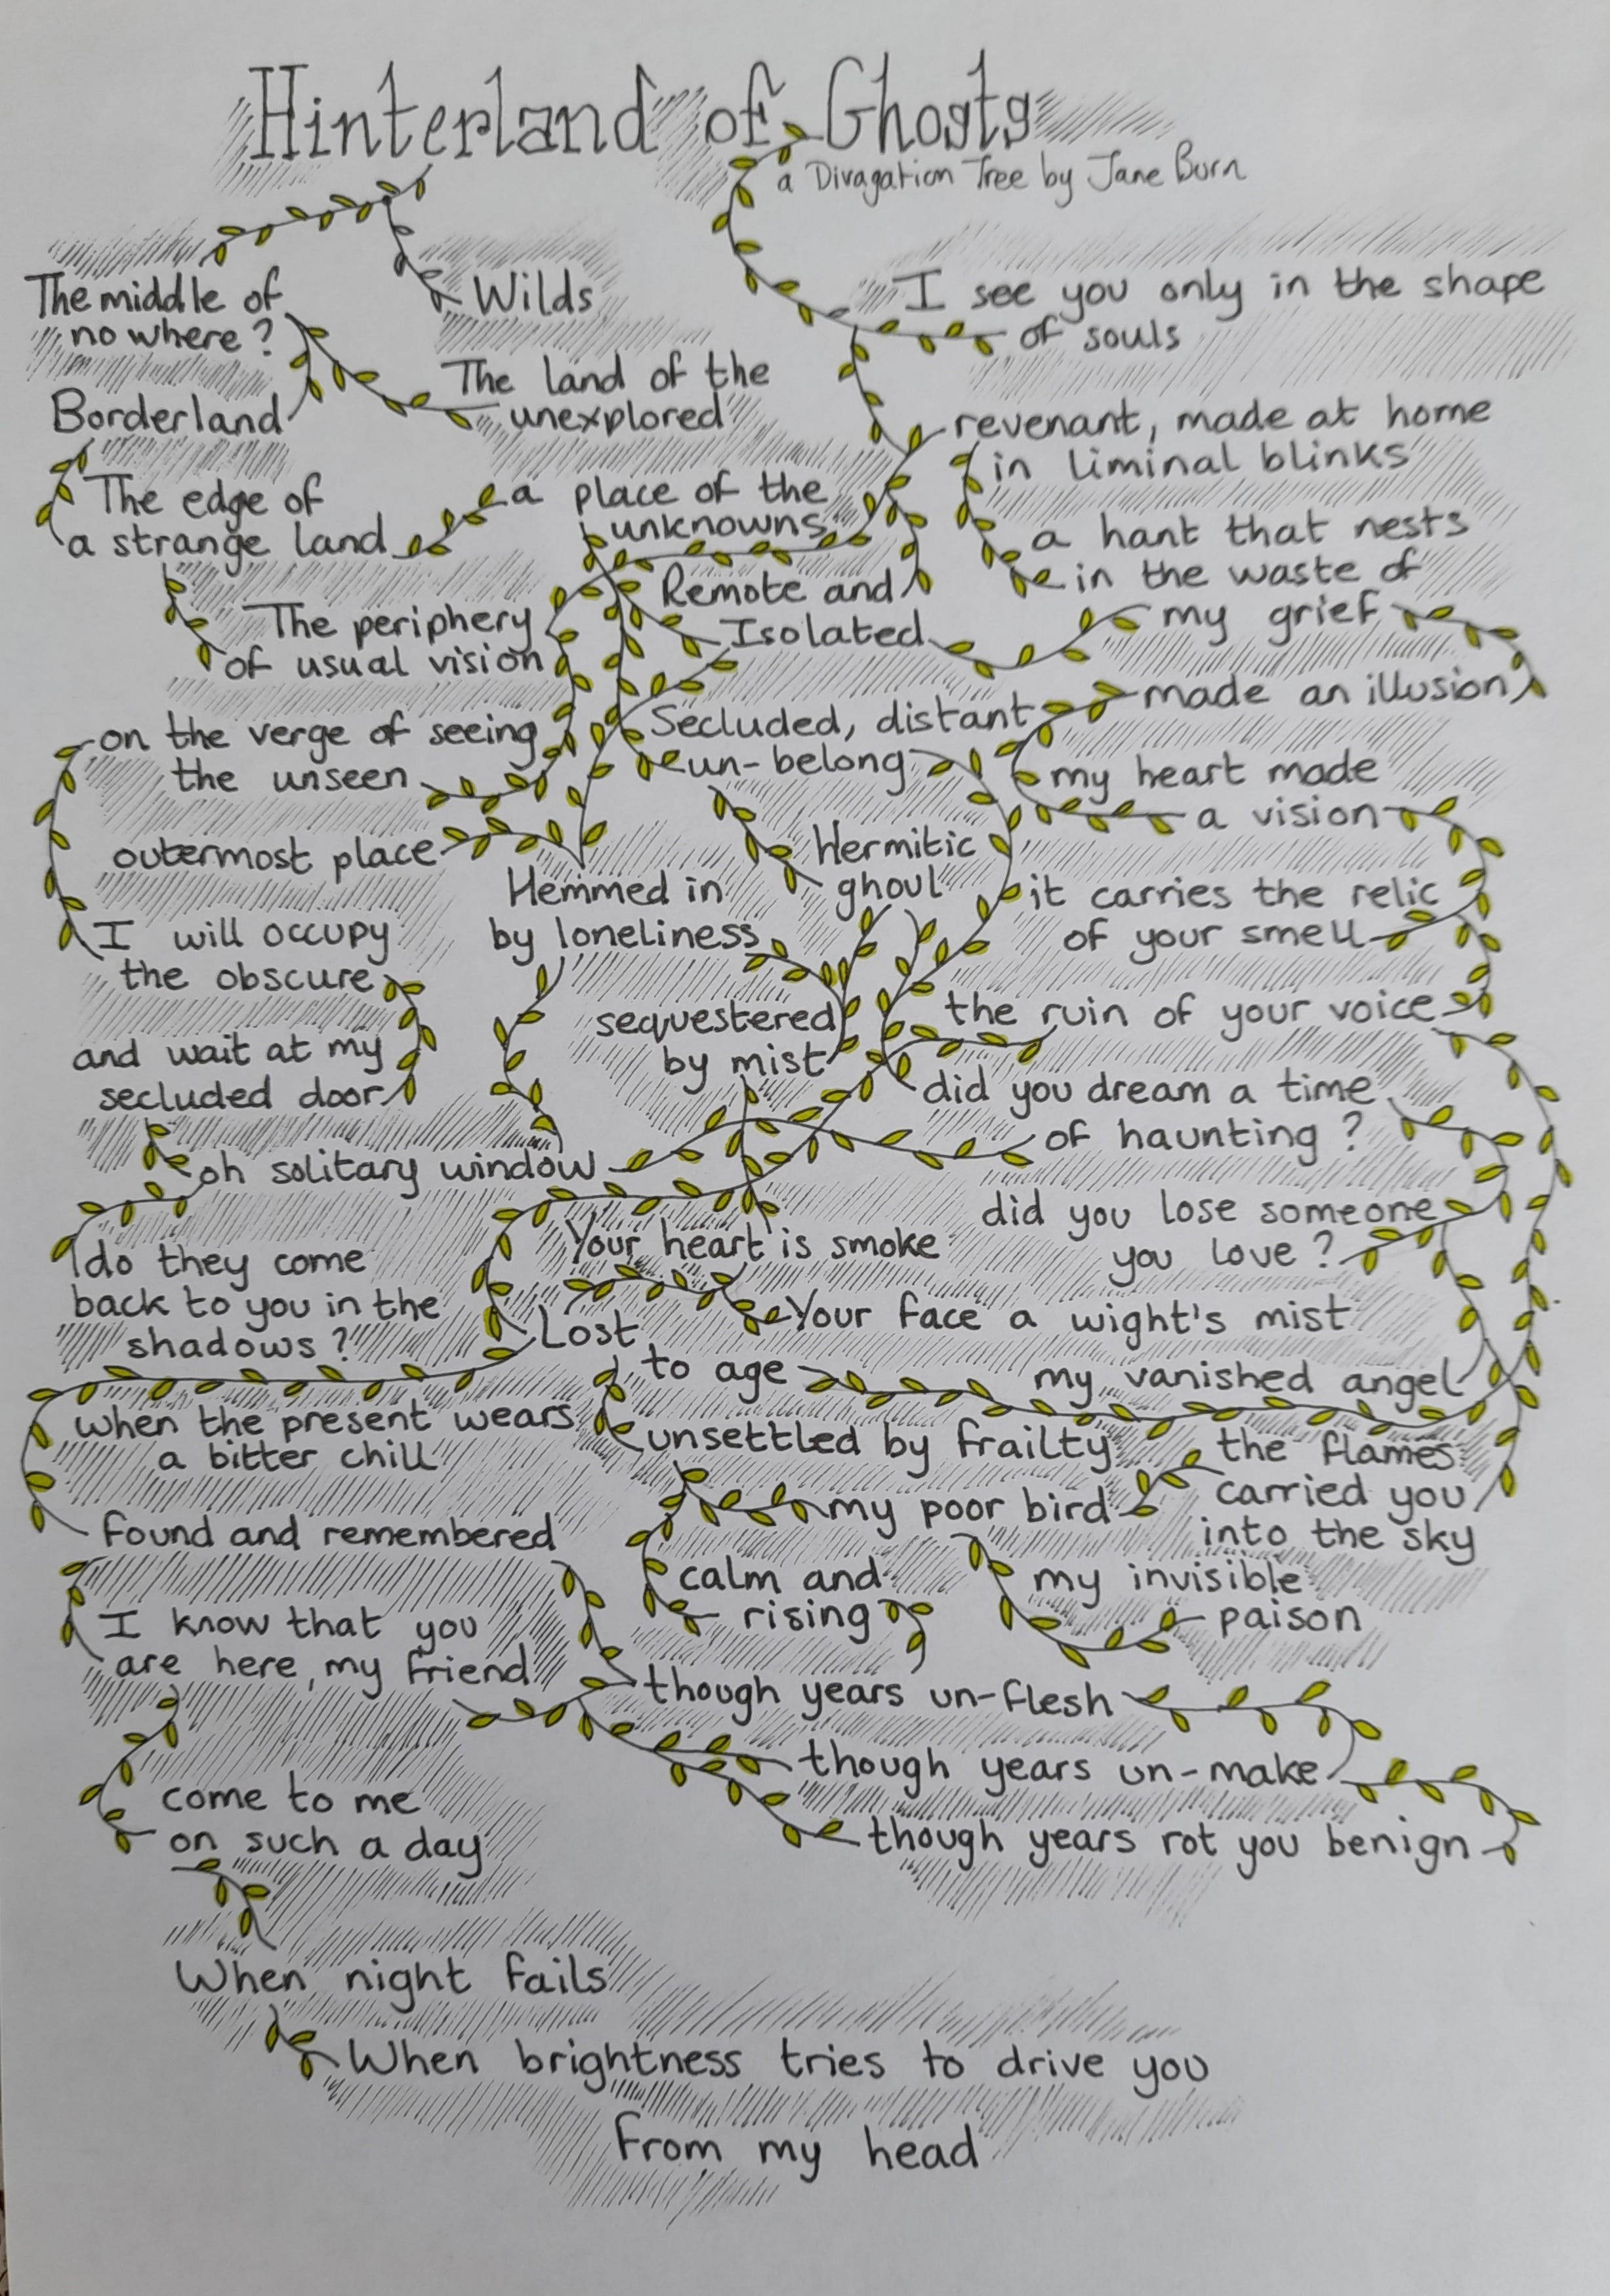 Hinterland of Ghosts
a Divagation Tree by Jane Burn
The middle of
no where?
Wilds
I see you only in the shape
of souls
The land of the
unexplored
Borderland
revenant, made at home
in liminal blinks
The edge of
a strange land
a place of the
unknowns
a hant that nests
in the waste of
Remote and
Isolated
my grief
The periphery
of usual vision
made an illusion
Secluded, distant
un-belong
on the verge of seeing
the unseen
my heart made
a vision
outermost place
Hermitic
ghoul
Hemmed in
by loneliness
it carries the relic
of your smell
I will occupy
the obscure
sequestered
by mist
the ruin of your voice
and wait at my
secluded door
did you dream a time
of haunting?
oh solitary window
did you lose someone
you love?
Your heart is smoke
do they come
back to you in the
shadows?
Your face a wight's mist
Lost
to age
my vanished angel
when the present wears
a bitter chill
unsettled by frailty
the flames
carried you
into the sky
my poor bird
found and remembered
calm and
rising
my invisible
paison
I know that you
are here, my friend
though years un-flesh
though years un-make
come to me
on such a day
though years rot you benign
When night fails
When brightness tries to drive you
from my head